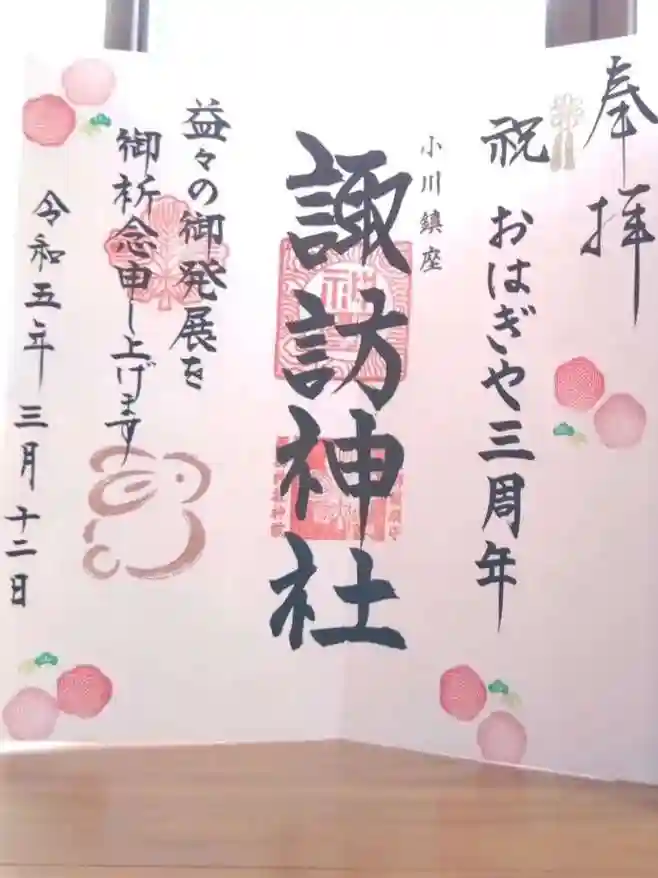 奉拝
祝 おはぎや三周年
小川鎮座
諏訪神社
益々の御発展を
御祈念申し上げます
令和五年 三月 十二日